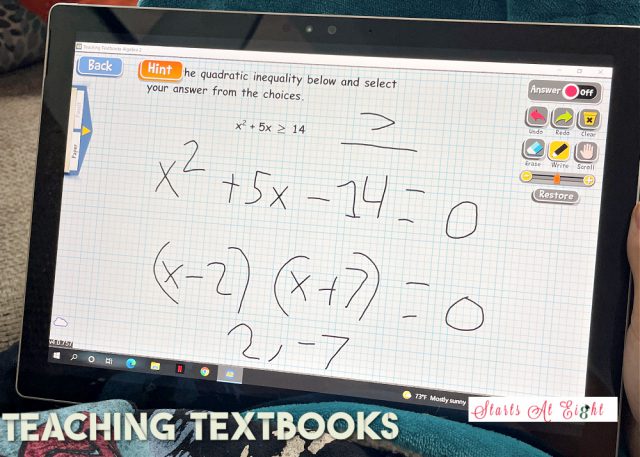 Teaching Textbooks Algebra 2
Back
Hint
he quadratic inequality below and select
your answer from the choices.
Answer Off
Undo Redo Clear
Erase Write Scroll
Restore
Paper
x² + 5x ≥ 14
>
x² + 5x - 14 = 0
(x - 2) (x + 7) = 0
2, -7
73°F Mostly sunny
Starts At Eight
TEACHING TEXTBOOKS